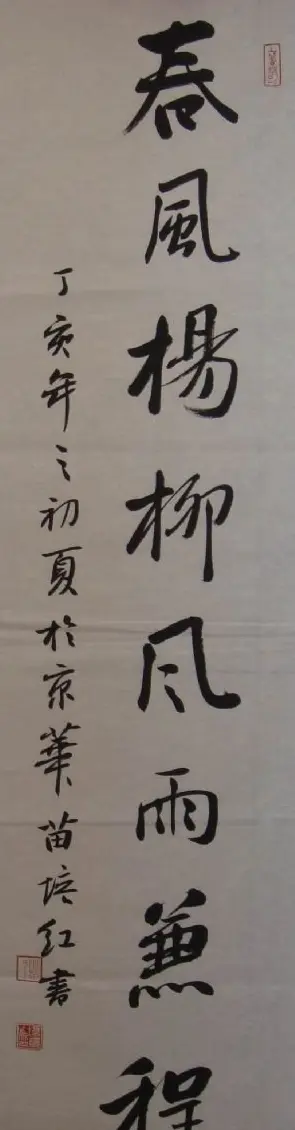 春風楊柳风雨兼程
丁亥年之初夏於京華苗培红書